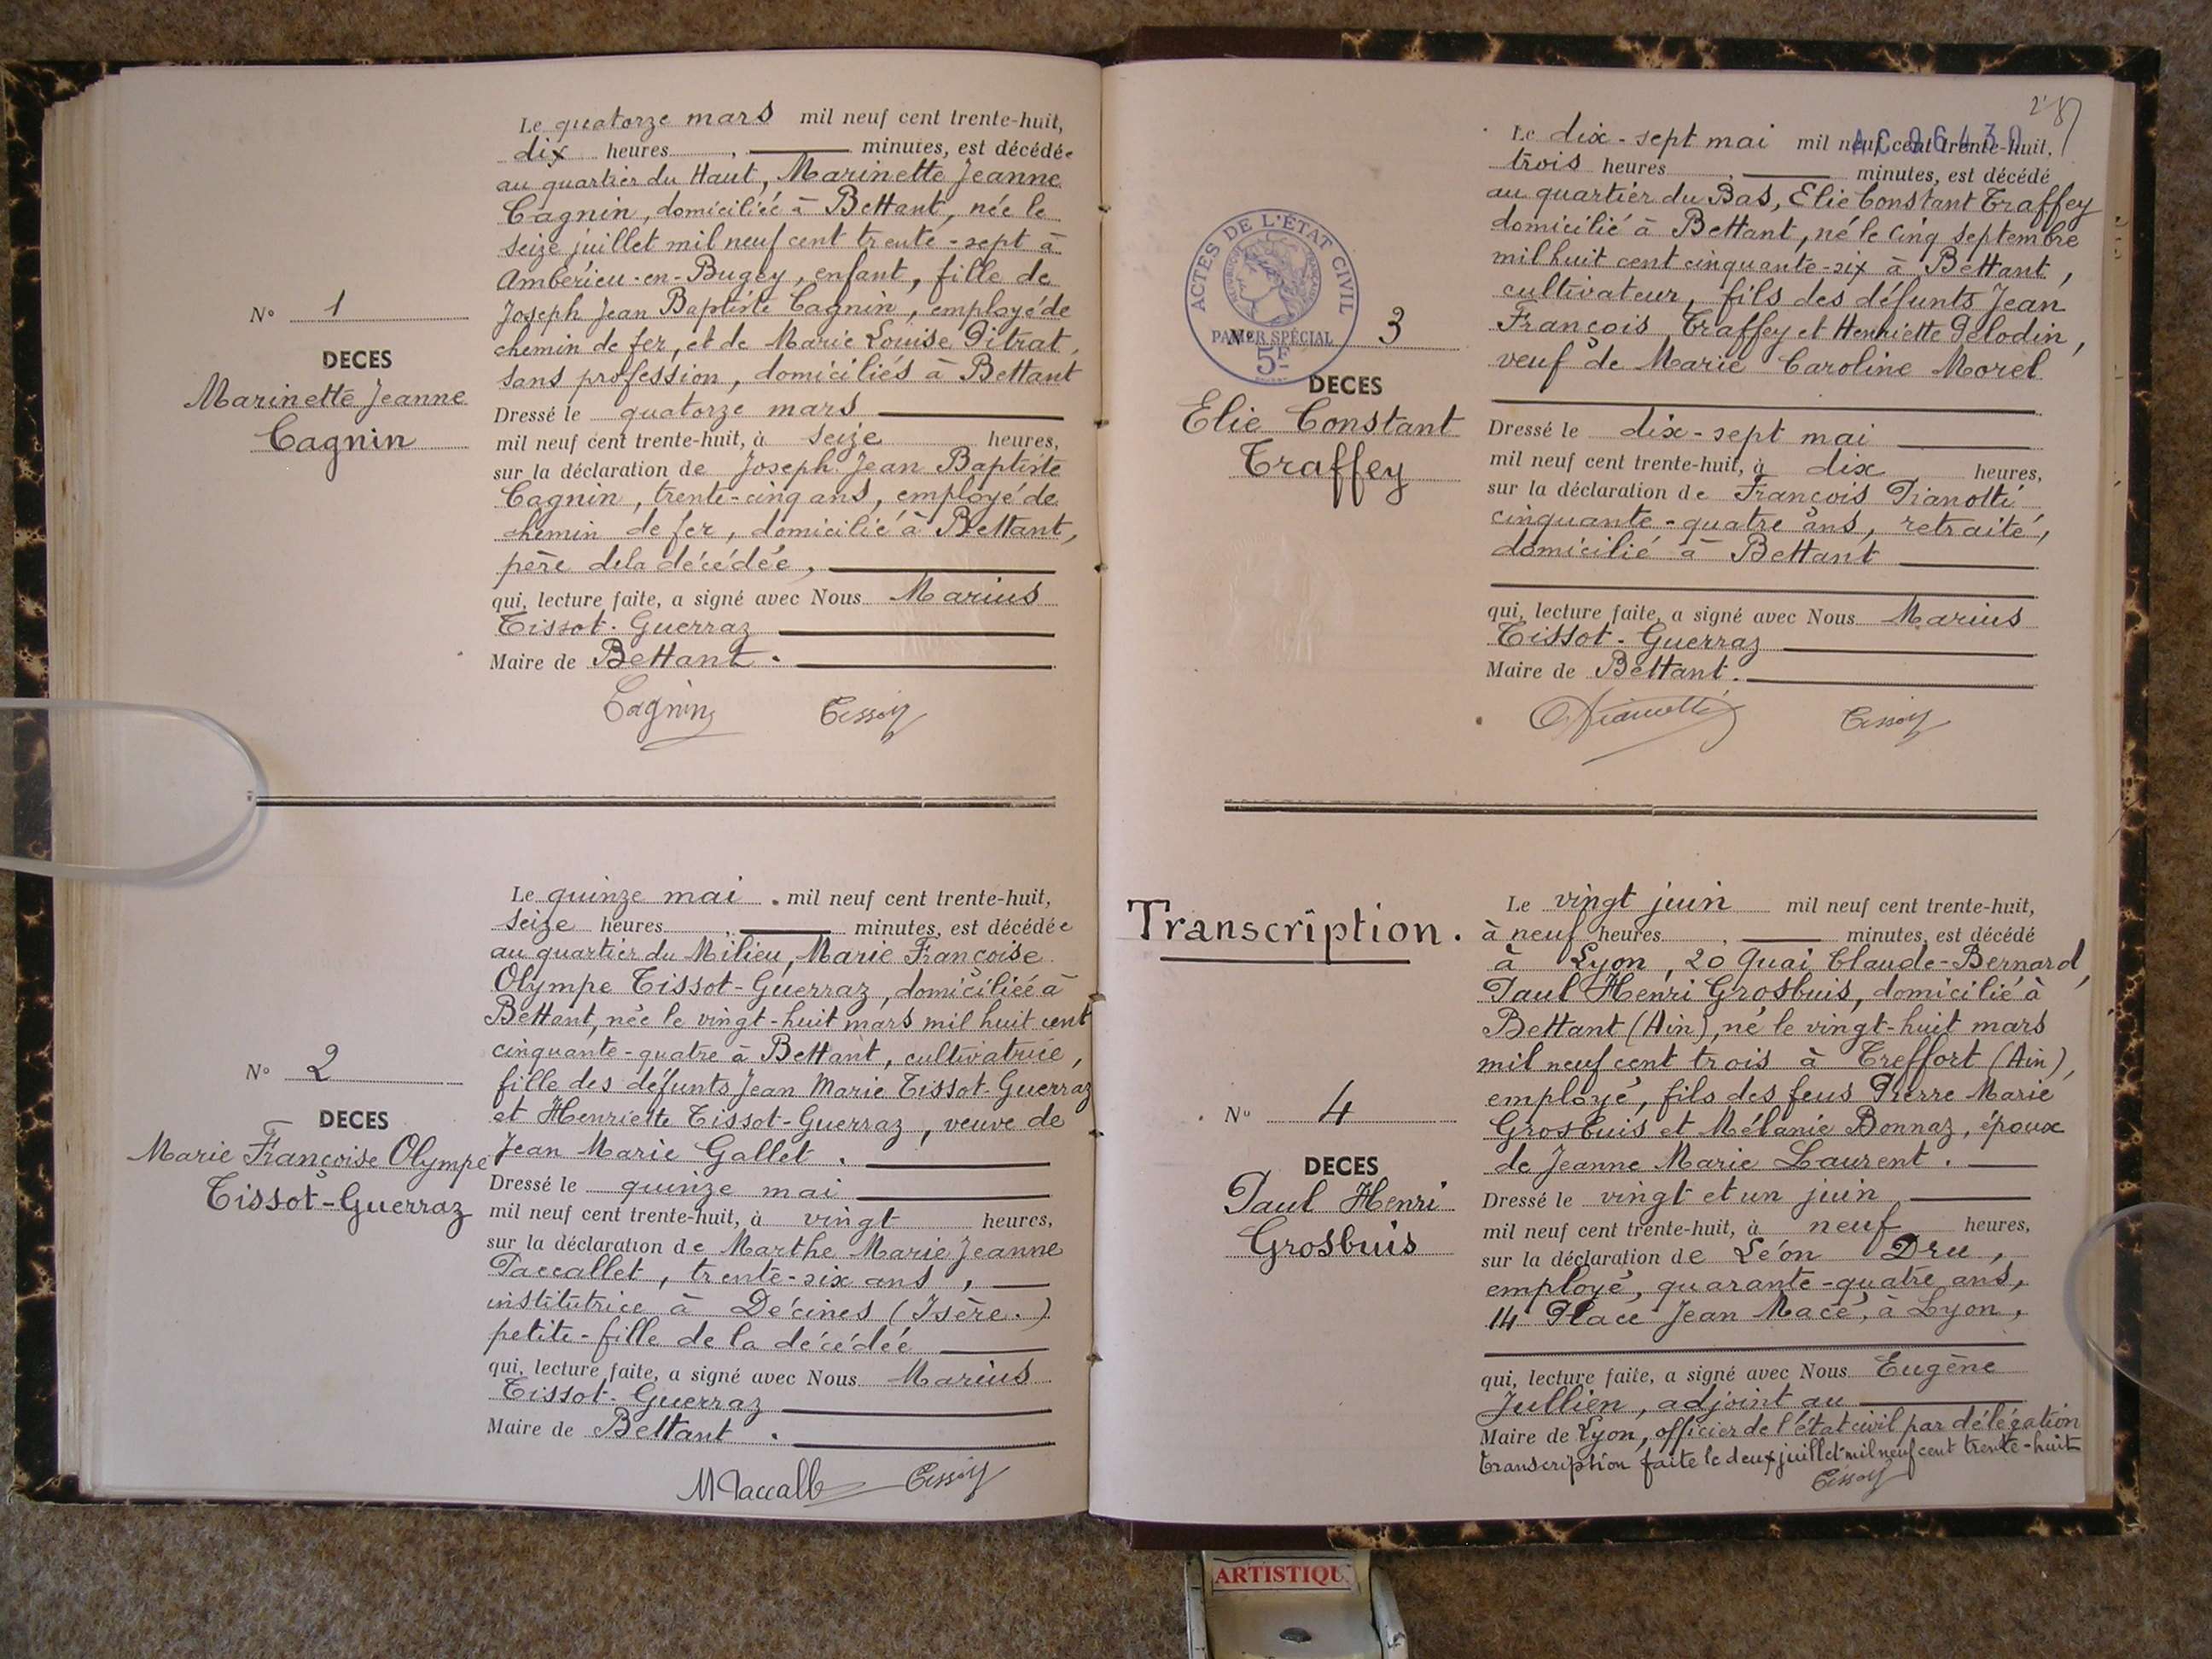 Le quatorze mars mil neuf cent trente-huit,
dix heures, minutes, est décédée
au quartier du Haut, Marinette Jeanne
Cagnin, domiciliée à Bettant, née le
seize juillet mil neuf cent trente-sept à
Ambérieu-en-Bugey, enfant, fille de
Joseph Jean Baptiste Cagnin, employé de
chemin de fer, et de Marie Louise Pitrat,
sans profession, domiciliés à Bettant
N° 1
DECES
Marinette Jeanne
Cagnin
Dressé le quatorze mars
mil neuf cent trente-huit, à seize heures,
sur la déclaration de Joseph Jean Baptiste
Cagnin, trente-cinq ans, employé de
chemin de fer, domicilié à Bettant,
père de la décédée,
qui, lecture faite, a signé avec Nous Marius
Tissot-Guerraz
Maire de Bettant.
Cagnin Tissot
Le quinze mai mil neuf cent trente-huit,
seize heures, minutes, est décédée
au quartier du Milieu, Marie Françoise
Olympe Tissot-Guerraz, domiciliée à
Bettant, née le vingt-huit mars mil huit cent
cinquante-quatre à Bettant, cultivatrice,
fille des défunts Jean Marie Tissot-Guerraz
et Henriette Tissot-Guerraz, veuve de
Jean Marie Gallet.
N° 2
DECES
Marie Françoise Olympe
Tissot-Guerraz
Dressé le quinze mai
mil neuf cent trente-huit, à vingt heures,
sur la déclaration de Marthe Marie Jeanne
Paccallet, trente-six ans,
institutrice à Décines (Isère.)
petite-fille de la décédée
qui, lecture faite, a signé avec Nous Marius
Tissot-Guerraz
Maire de Bettant.
M Paccalle Tissot
Le dix-sept mai mil neuf cent trente-huit,
trois heures, minutes, est décédé
au quartier du Bas, Elie Constant Traffey
domicilié à Bettant, né le cinq septembre
mil huit cent cinquante-six à Bettant,
cultivateur, fils des défunts Jean
François Traffey et Henriette Pelodin,
veuf de Marie Caroline Morel
ACTES DE L'ÉTAT CIVIL
RÉPUBLIQUE FRANÇAISE
PAPIER SPÉCIAL
5F
N° 3
DECES
Elie Constant
Traffey
Dressé le dix-sept mai
mil neuf cent trente-huit, à dix heures,
sur la déclaration de François Pianotti
cinquante-quatre ans, retraité,
domicilié à Bettant
qui, lecture faite, a signé avec Nous Marius
Tissot-Guerraz
Maire de Bettant.
Pianotti Tissot
Transcription.
Le vingt juin mil neuf cent trente-huit,
à neuf heures, minutes, est décédé
à Lyon, 20 Quai Claude-Bernard,
Paul Henri Grosbuis, domicilié à
Bettant (Ain), né le vingt-huit mars
mil neuf cent trois à Treffort (Ain),
employé, fils des feus Pierre Marie
Grosbuis et Mélanie Bonnaz, époux
de Jeanne Marie Laurent.
N° 4
DECES
Paul Henri
Grosbuis
Dressé le vingt et un juin
mil neuf cent trente-huit, à neuf heures,
sur la déclaration de Léon Dru,
employé, quarante-quatre ans,
14 Place Jean Macé, à Lyon,
qui, lecture faite, a signé avec Nous Eugène
Jullien, adjoint au
Maire de Lyon, officier de l'état civil par délégation
Transcription faite le deux juillet mil neuf cent trente-huit
Tissot
ARTISTIQU